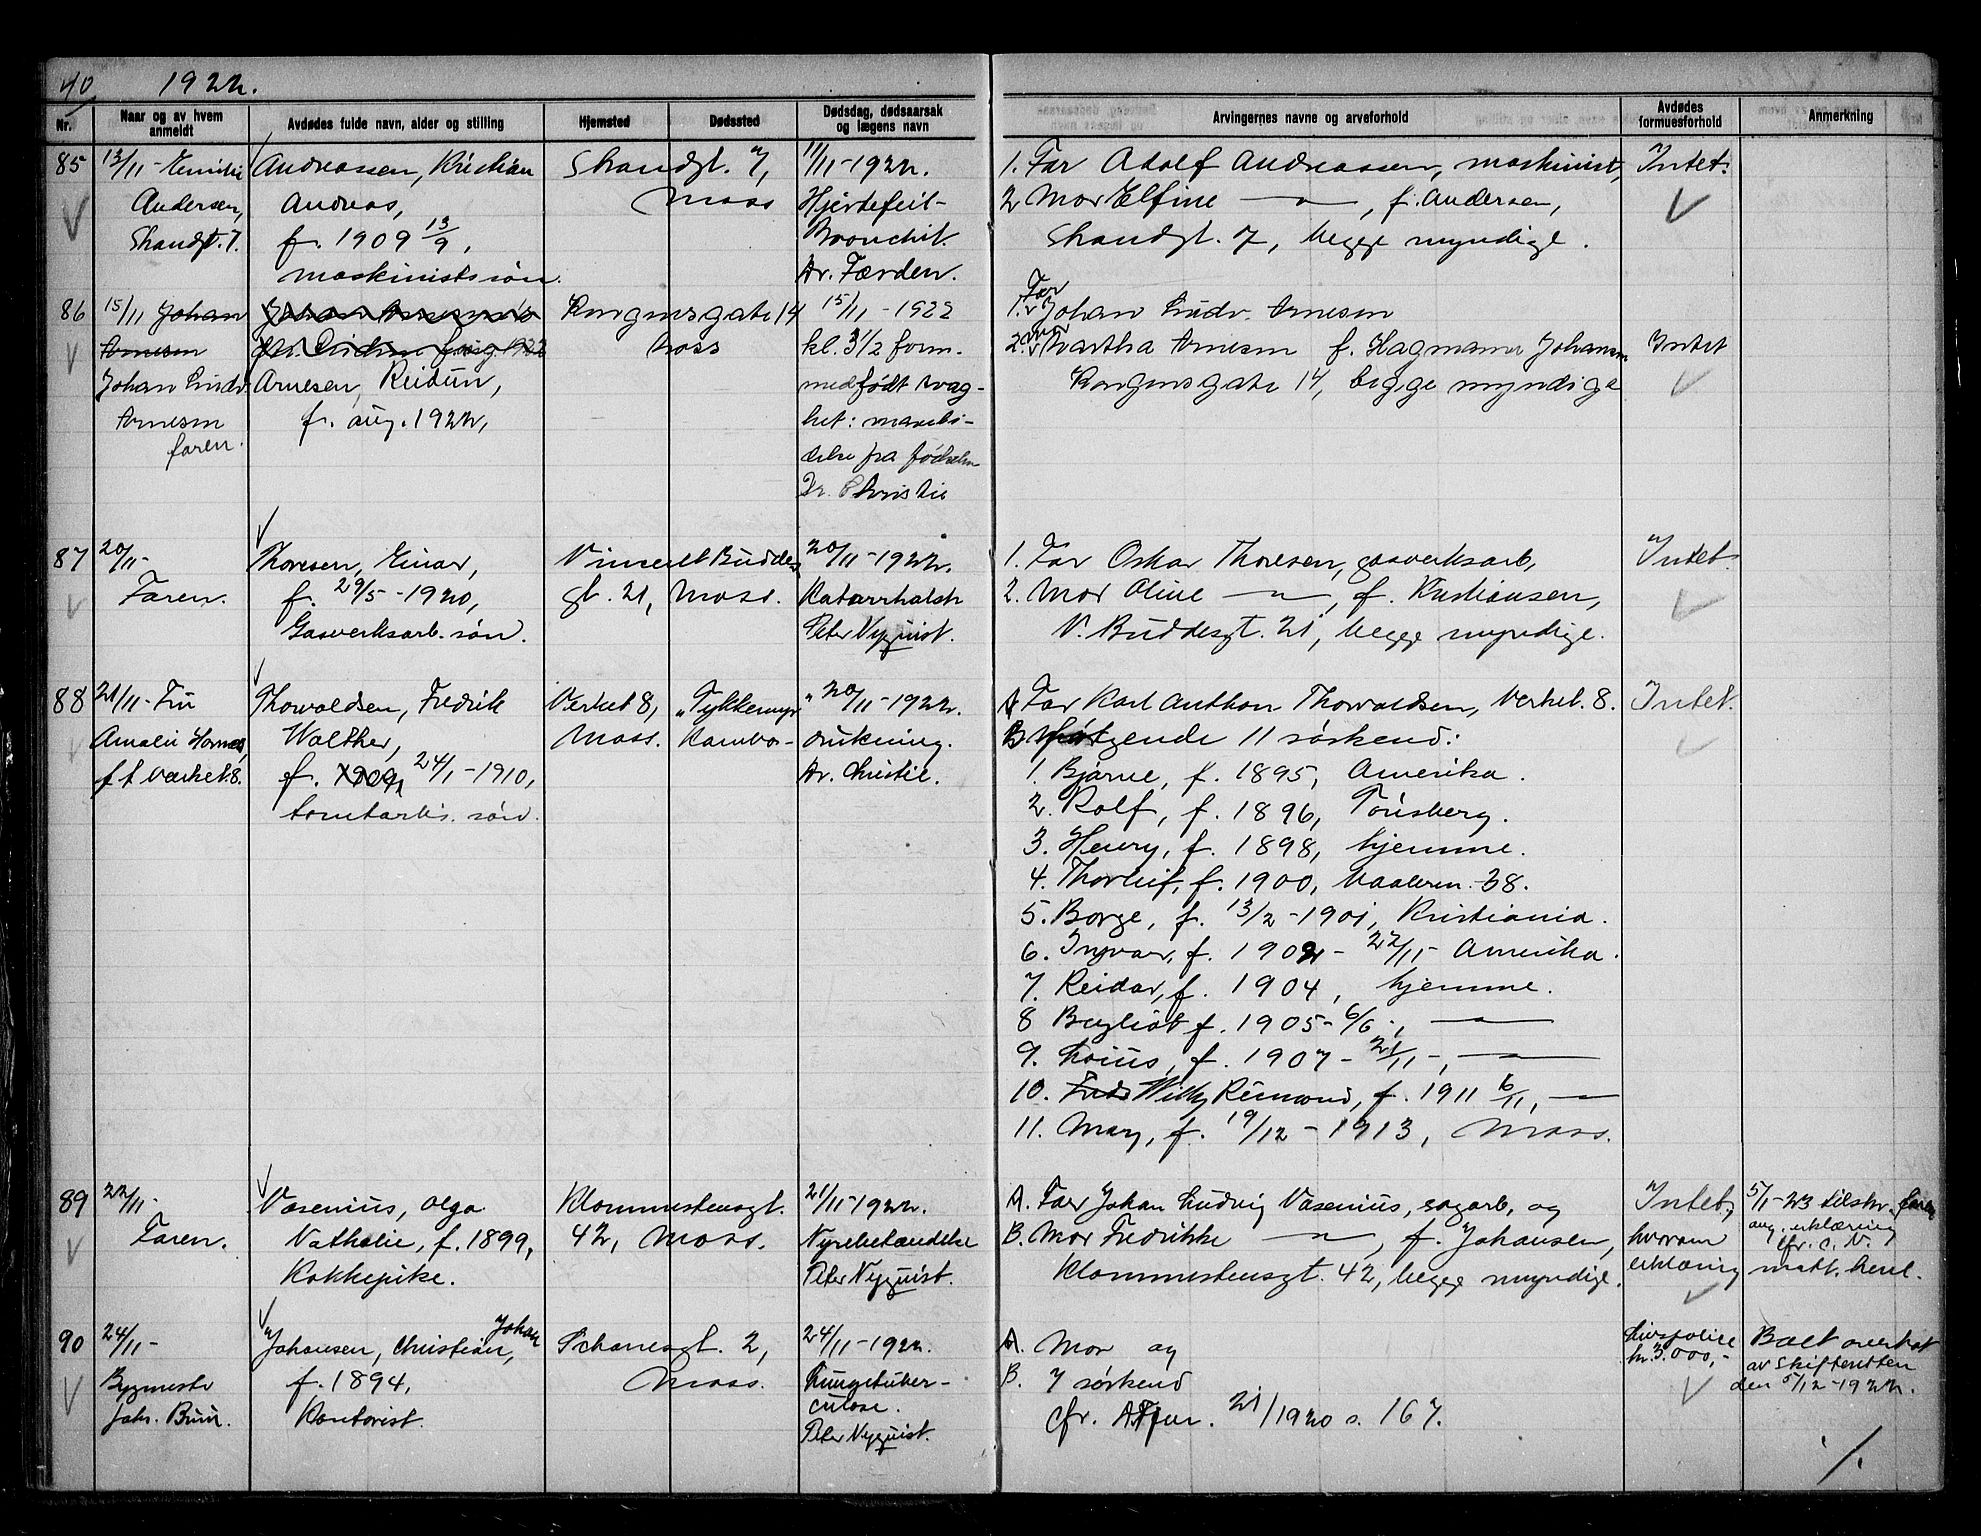 40 1922.
Nr. Naar og av hvem anmeldt Avdødes fulde navn, alder og stilling Hjemsted Dødssted Dødsdag, dødsaarsak og lægens navn Arvingernes navne og arveforhold Avdødes formuesforhold Anmerkning
85 13/11 - Emilie Andreassen, Kristian Strandgt. 7, 11/11-1922. 1. Far Adolf Andreassen, maskinist, Intet.
Andersen, Andreas, Moss Hjertefeil- 2 Mor Elfine —"—, f. Andersen,
Strandgt. 7. f. 1909 13/9, Bronchit. Strandgt. 7, begge myndige.
maskinistsøn. Dr. Færden.
86 15/11 Johan Kongensgate 14 15/11 - 1922 1. Far Johan Ludv. Arnesen
Arnesen Moss kl. 3 1/2 form. 2. Mor Martha Arnesen f. Hagmann Johansen Intet
Johan Ludv. Arnesen, Reidun, medfødt svag- Kongensgate 14, begge myndige
Arnesen f. aug. 1922, het:
faren. fra fødselen
Dr. Christie
87 20/11- Thoresen, Einar, Vincent Buddes 20/11-1922. 1. Far Oskar Thoresen, gasverksarb, Intet.
Faren. f. 29/5-1920, gt. 21, Moss. Katarrhalsk 2. Mor Oline —"—, f. Kristiansen,
Gasverksarb. søn. Peter Nyquist. V. Buddesgt. 21, begge myndige.
88 21/11 - Fru Thorvaldsen, Fredrik Verket 8, "Tykkemyr" 20/11-1922. A Far Karl Anthon Thorvaldsen, Verket. 8. Intet.
Amalie Hornes, Walther, Moss. Kambo- drukning. B følgende 11 søskend:
f f Værket 8. f. 1909, 24/1-1910, Dr. Christie. 1. Bjarne, f. 1895, Amerika.
tomtarb. søn. 2. Rolf, f. 1896, Tønsberg.
3. Henry, f. 1898, hjemme.
4. Thorleif, f. 1900, Vaaleren. 38.
5. Borge, f. 13/2-1901, Kristiania.
6. Ingvar, f. 1902 - 22/11- Amerika.
7. Reidar, f. 1904, hjemme.
8 Bergliot f. 1905 - 6/6-, —"—
9. Louis, f. 1907 - 21/11-, —"—
10. Fred Willy Reimond, f. 1911 6/11, —"—
11. Mary, f. 19/12 - 1913, Moss.
89 22/11- Vasenius, Olga Klommestensgt. 21/11-1922. A. Far Johan Ludvig Vasenius, sagarb, og Intet, 5/1-23 tilskr. faren
Faren. Nathalie, f. 1899, 42, Moss. Nyrebetændelse B. Mor Fredrikke —"—, f. Johansen, hvorom ang. erklæring
Kokkepike. Peter Nyquist. Klommestensgt. 42, begge myndige. erklæring cfr. C. N.
matt. henl.
90 24/11- Johansen, Christian, Johan Schanesgt. 2, 24/11-1922. A. Mor og Livspolice Boet overtat
Bygmester f. 1894, Moss. Lungetuber- B. 7 søskend kr. 3.000,- av skifteretten
Johs. Brun. Kontorist. culose. cfr. 21/1920 s. 167. den 5/12-1922.
Peter Nyquist.